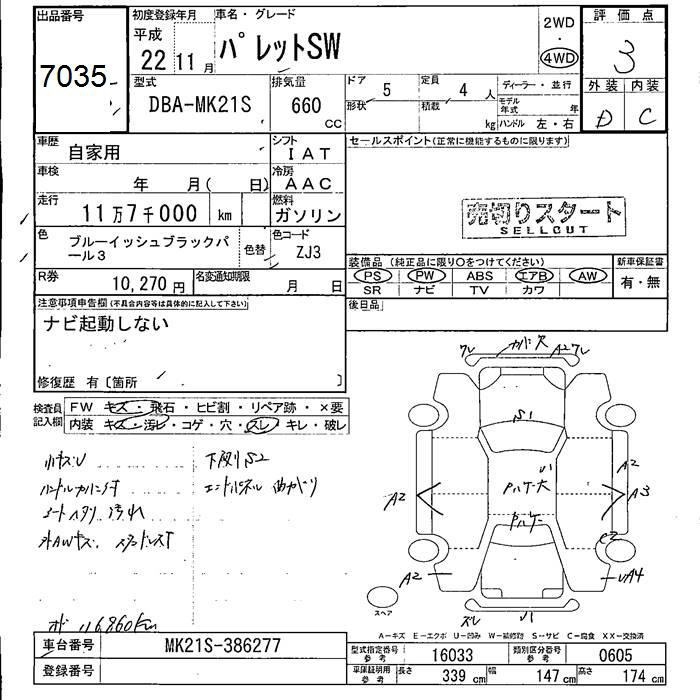 出品番号
7035
初度登録年月
平成
22 11 月
車名・グレード
パレットSW
2WD
4WD
評価点
3
外装 内装
D C
型式
DBA-MK21S
排気量
660
CC
ドア 5
形状
定員 4 人
積載 kg
ディーラー・並行
モデル年式 年
ハンドル 左・右
車歴
自家用
シフト
IAT
車検
年 月( 日)
冷房
AAC
走行
11万7千000 km
燃料
ガソリン
色
ブルーイッシュブラックパール3
色替
色コード
ZJ3
R券
10,270 円
名変通知期限
月 日
セールスポイント(正常に機能するものに限ります)
売切りスタート
SELLOUT
装備品(純正品に限り○をつけてください)
PS PW ABS エアB AW
SR ナビ TV カワ
新車保証書
有・無
後日品
注意事項申告欄(不具合内容等は具体的に記入して下さい)
ナビ起動しない
修復歴 有〔箇所 〕
検査員記入欄
FW キズ・飛石・ヒビ割・リペア跡・×要
内装 キズ・汚レ・コゲ・穴・スレ・キレ・破レ
下廻りS2
シートヘタリ 汚れ
外AWキズ
116860km
ワレ
カバー穴
A2ワレ
S1
U1
A2
A3
A2
A2
UA4
スレ
U1
スペア
A-キズ E-エクボ U-凹み W-補修跡 S-サビ C-腐食 XX-交換済
車台番号
MK21S-386277
登録番号
型式指定番号
参考
16033
類別区分番号
参考
0605
車庫証明用
参考
長さ
339 cm
幅
147 cm
高さ
174 cm